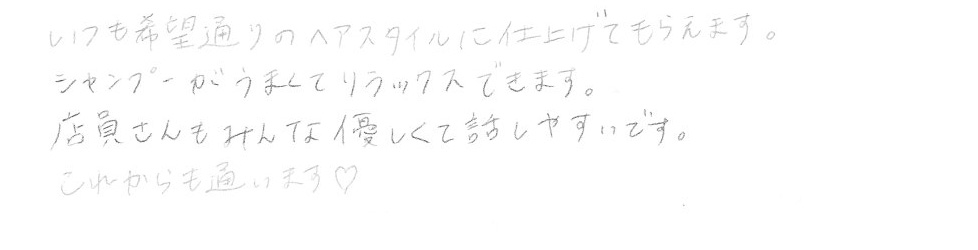 いつも希望通りのヘアスタイルに仕上げてもらえます。
シャンプーがうまくてリラックスできます。
店員さんもみんな優しくて話しやすいです。
これからも通います♡